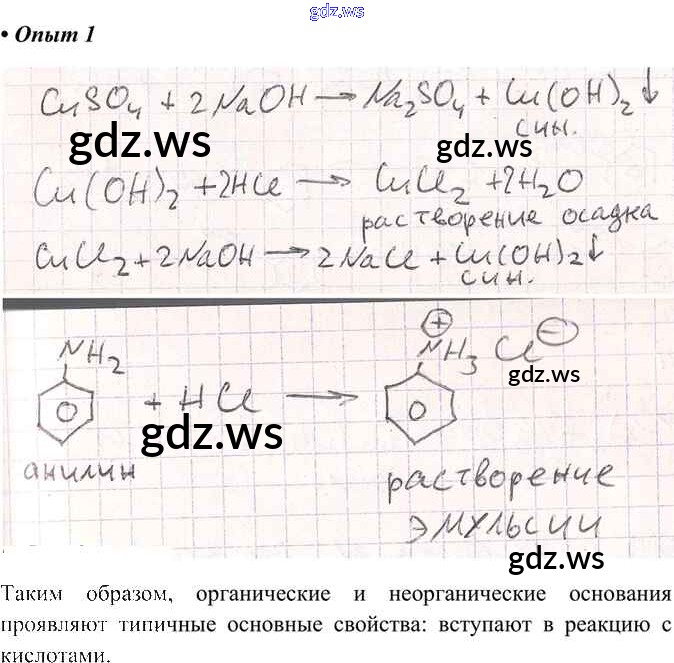 gdz.ws
• Опыт 1
CuSO₄ + 2NaOH → Na₂SO₄ + Cu(OH)₂↓
син.
gdz.ws
gdz.ws
Cu(OH)₂ + 2HCl → CuCl₂ + 2H₂O
растворение осадка
CuCl₂ + 2NaOH → 2NaCl + Cu(OH)₂↓
син.
gdz.ws
NH₂ + HCl → ⊕NH₃ Cl⊖
gdz.ws
gdz.ws
анилин
растворение
эмульсии
gdz.ws
Таким образом, органические и неорганические основания
проявляют типичные основные свойства: вступают в реакцию с
кислотами.